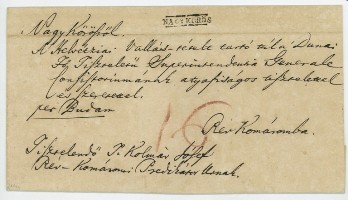 NAGYKŐRÖS
Nagy Kőrösről.
A Helvécziai Vallás-tétele tartó túl a Dunai
Fő Tiszteletű Superintendentia Generale
Consistoriumának atyafiságos tisztelettel
és szeretettel.
per Budam
16
Rév Komáromba.
Tisztelendő T. Kolmár Jósef
Rév-Komáromi Predikátor Urnak.